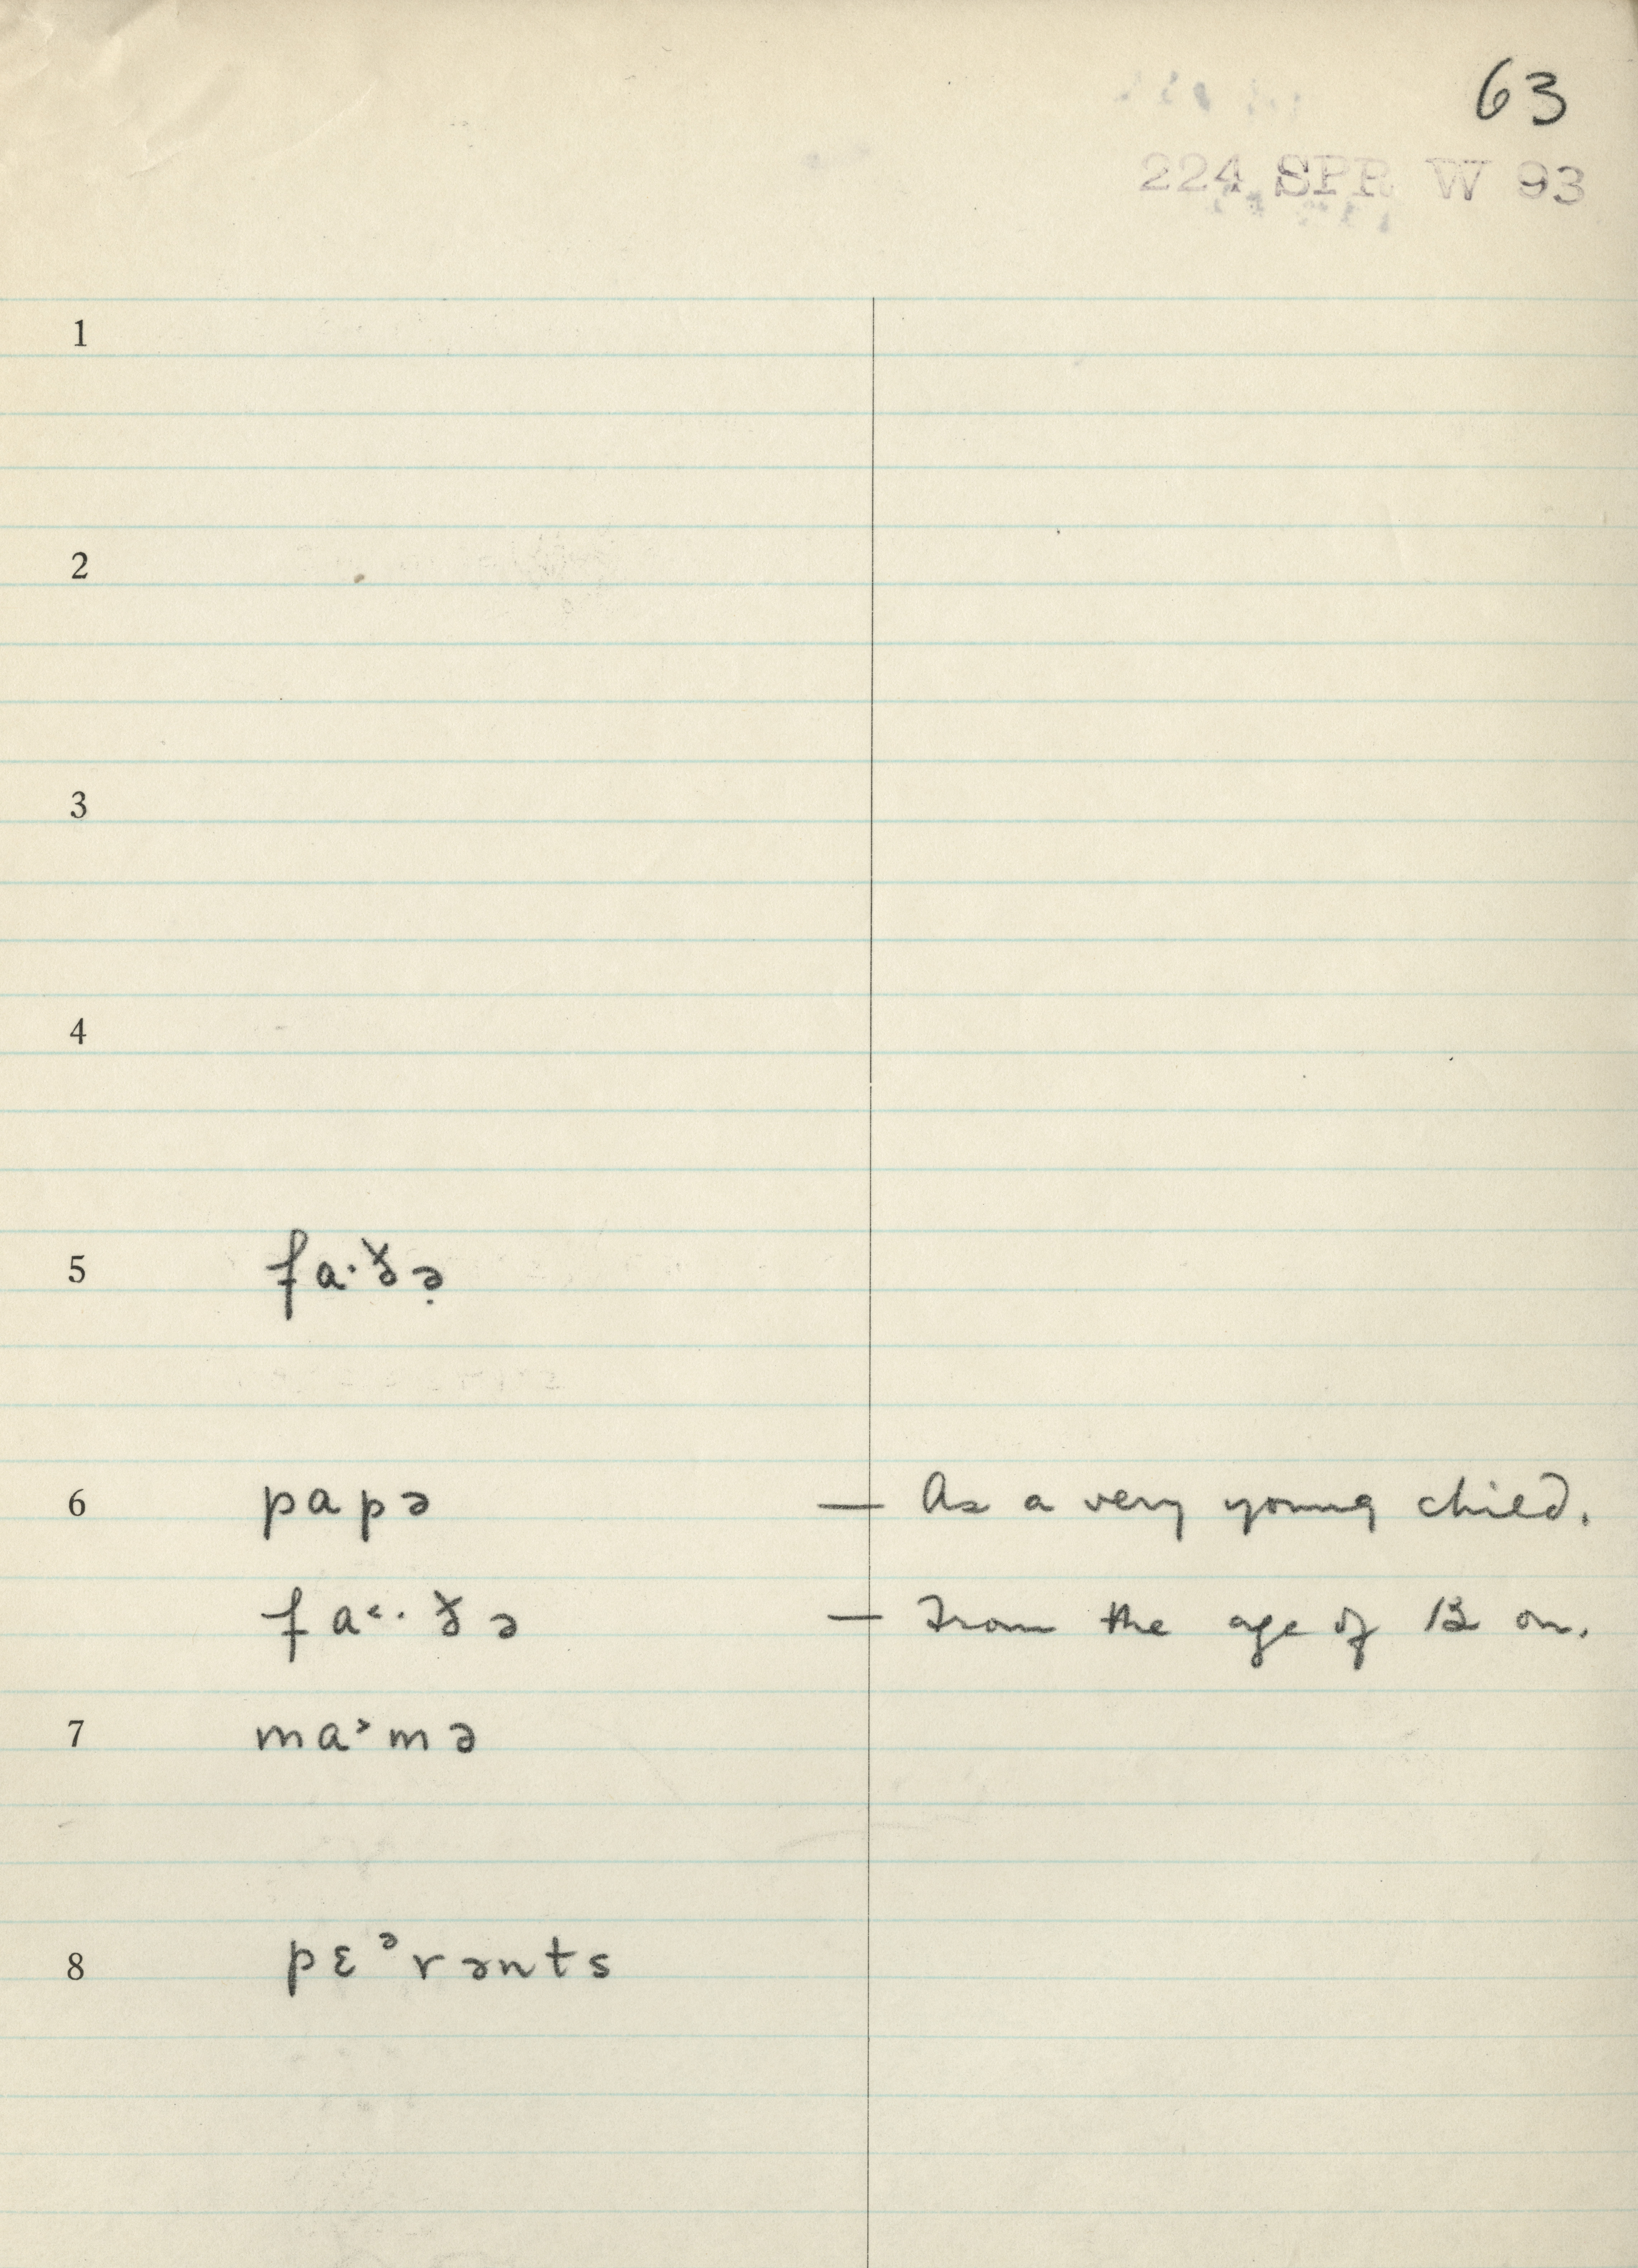 63
224 SPR W 93
1
2
3
4
5 fa·ðə̣
6 papə — As a very young child.
fa˂·ðə — From the age of 12 on.
7 ma˃mə
8 pɛᵊrənts